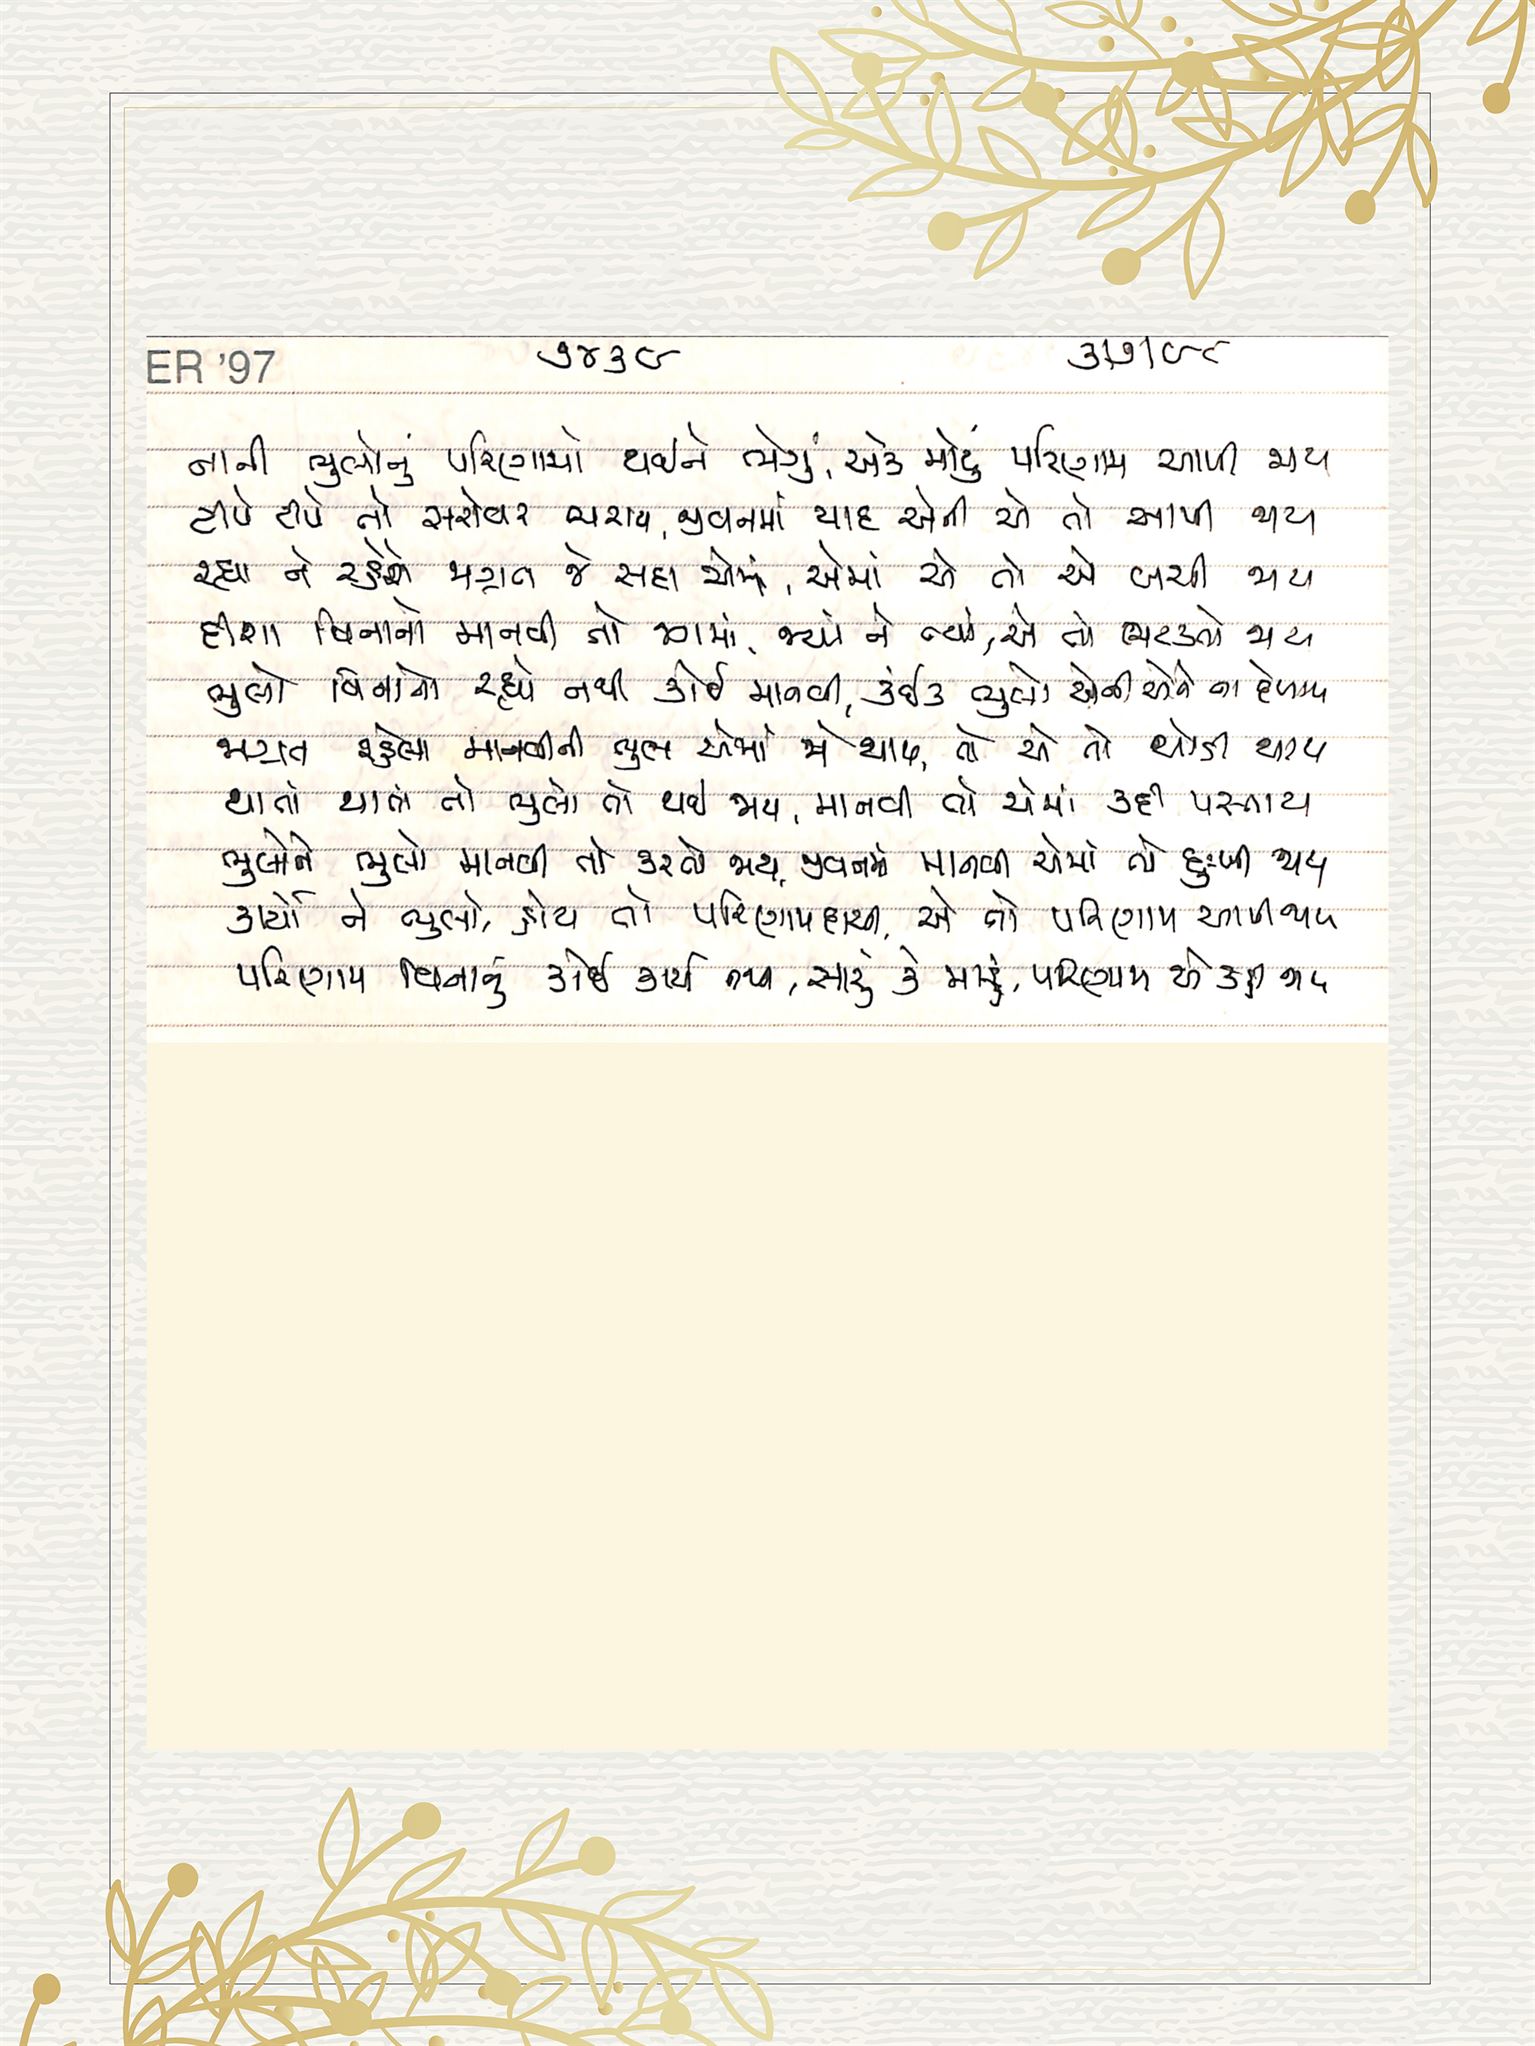 ER '97 ૭૪૩૯ ૩।૭।૯૮
નાની ભુલોનું પરિણામો થઈને ભેગું, એક મોટું પરિણામ આપી જાય
ટીપે ટીપે તો સરોવર ભરાય, જીવનમાં યાદ એની એ તો આપી જાય
રહ્યા ને રહેશે જાગ્રત જે સદા એમાં, એમાં એ તો એ બચી જાય
દીશા વિનાનો માનવી તો જગમાં, જ્યાં ને ત્યાં, એ તો ભટકતો જાય
ભુલો વિનાનો રહ્યો નથી કોઈ માનવી, કંઈક ભુલો એની એને ના દેખાય
જાગ્રત રહેલા માનવીની ભુલ એમાં જો થાય, તો એ તો થોડી થાય
થાતાં થાતાં તો ભુલો તો થઈ જાય, માનવી તો એમાં કદી પસ્તાય
ભુલોને ભુલો માનવી તો કરતો જાય, જીવનમાં માનવી એમાં તો દુઃખી થાય
કાર્યો ને ભુલો, હોય તો પરિણામદાયી, એ તો પરિણામ આપી જાય
પરિણામ વિનાનું કોઈ કાર્ય નથી, સારું કે માઠું, પરિણામ એ કહી જાય